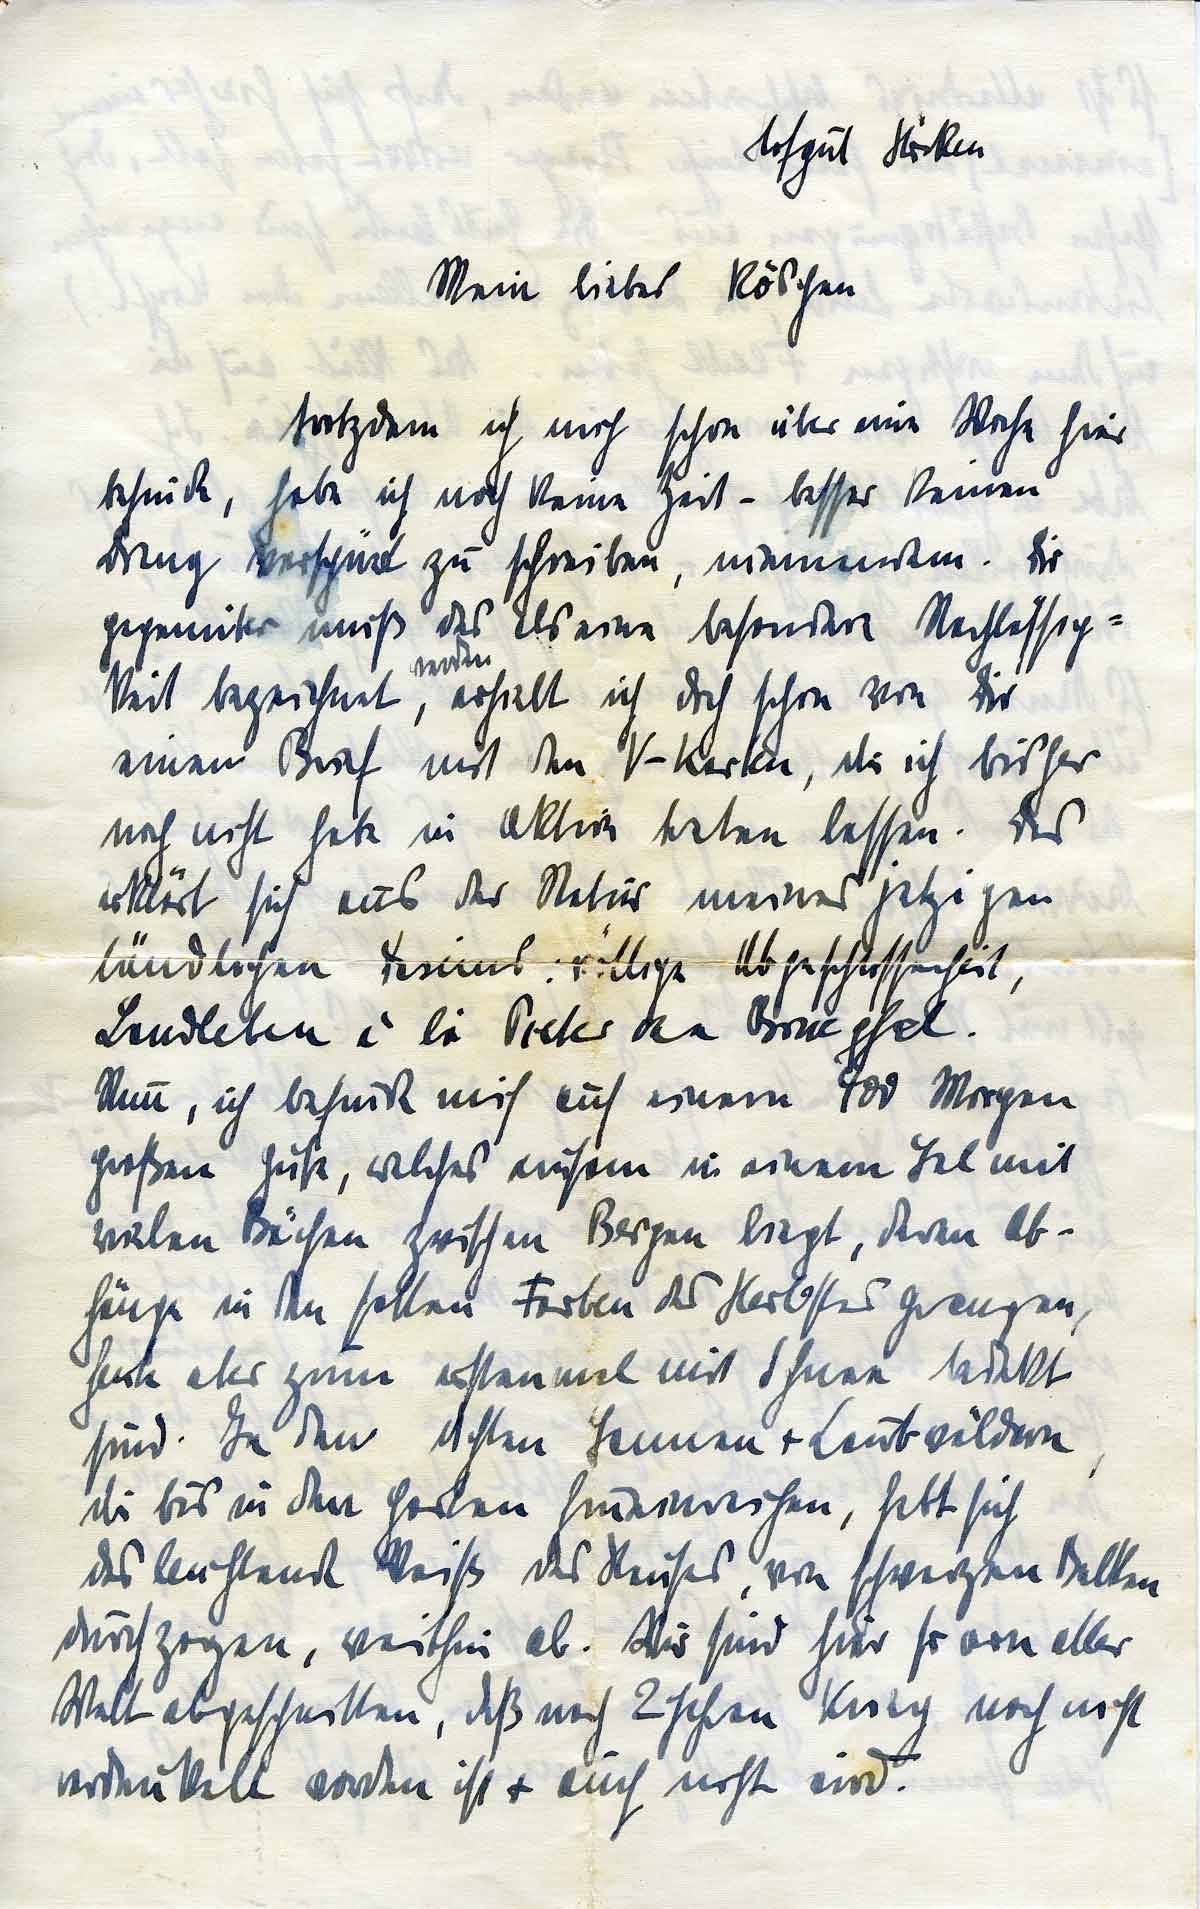 Hofgut Hörken
Mein liebes Röschen
trotzdem ich mich schon über eine Woche hier
befinde, habe ich noch keine Zeit - besser keinen
Drang verspürt zu schreiben, niemandem. Dir
gegenüber muß das als eine besondere Nachlässig=
keit bezeichnet werden, erhielt ich doch schon von Dir
einen Brief mit den V-Karten, die ich bisher
noch nicht habe in Aktion treten lassen. Das
erklärt sich aus der Natur meines jetzigen
ländlichen Daseins: völlige Abgeschlossenheit,
Landleben à la Pieter van Brueghel.
Nun, ich befinde mich auf einem 400 Morgen
großen Gute, welches einsam in einem Tal mit
vielen Bächen zwischen Bergen liegt, deren Ab-
hänge in den satten Farben des Herbstes prangen,
heute aber zum erstenmal mit Schnee bedeckt
sind. In den dichten Tannen + Laubwäldern,
die bis in den Garten hineinreichen, hebt sich
das leuchtende Weiß des Hauses, von schwarzen Balken
durchzogen, weithin ab. Wir sind hier so von aller
Welt abgeschnitten, daß nach 2 Jahren Krieg noch nicht
verdunkelt worden ist + auch nicht wird.